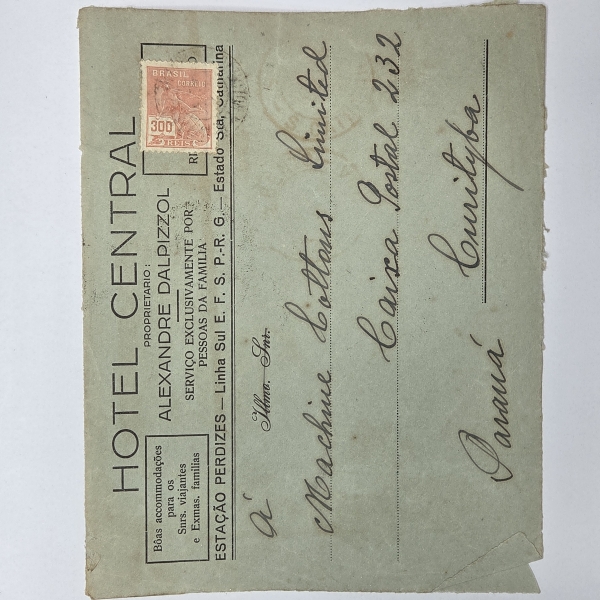 HOTEL CENTRAL
PROPRIETARIO:
ALEXANDRE DALPIZZOL
SERVIÇO EXCLUSIVAMENTE POR
PESSOAS DA FAMILIA
Bôas accommodações
para os
Snrs. viajantes
e Exmas. familias
BRASIL
CORREIO
300
REIS
ESTAÇÃO PERDIZES — Linha Sul E. F. S. P.-R. G. — Estado Sta. Catharina
Illmo. Snr.
Á
Machine Cottons Limited
Caixa Postal 232
Curityba
Paraná